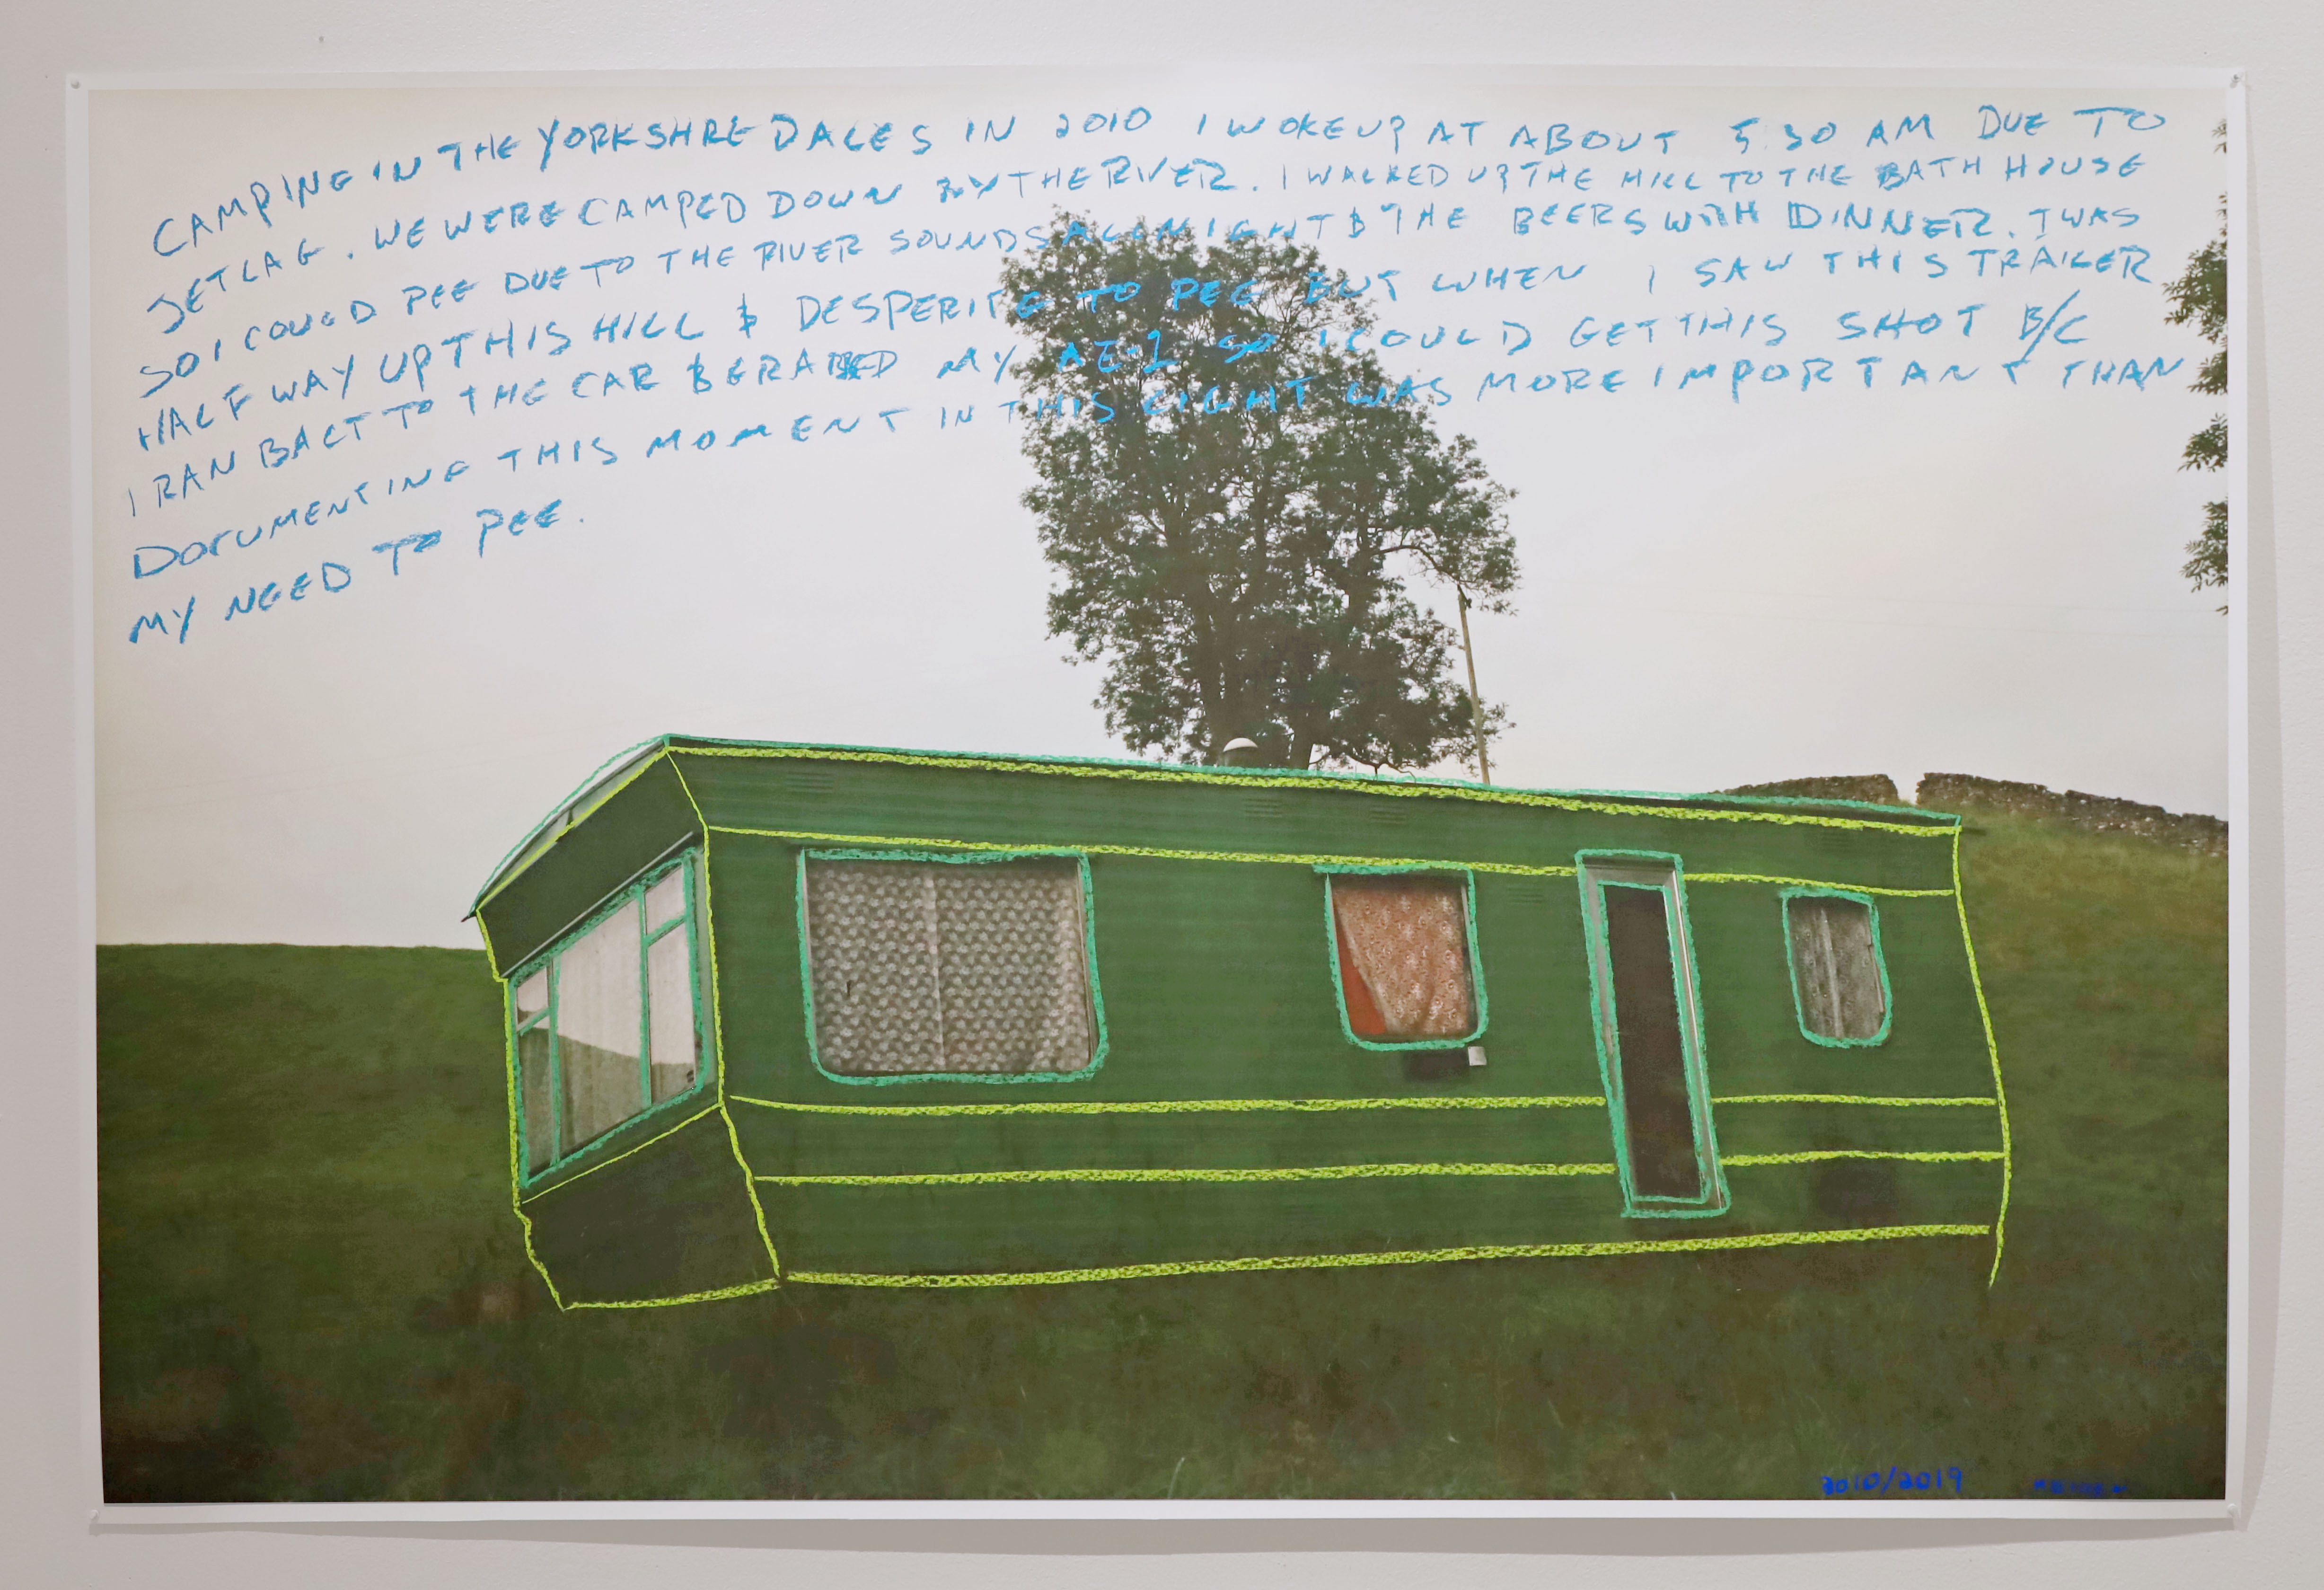 CAMPING IN THE YORKSHRE DALES IN 2010 I WOKE UP AT ABOUT 5:30 AM DUE TO
JETLAG. WE WERE CAMPED DOWN BY THE RIVER. I WALKED UP THE HILL TO THE BATH HOUSE
SO I COULD PEE DUE TO THE RIVER SOUNDS ALL NIGHT & THE BEERS WITH DINNER. I WAS
HALF WAY UP THIS HILL & DESPERITE TO PEE BUT WHEN I SAW THIS TRAILER
I RAN BACT TO THE CAR & GRABBED MY AE-1 SO I COULD GET THIS SHOT B/C
DOCUMENTING THIS MOMENT IN THIS LIGHT WAS MORE IMPORTANT THAN
MY NEED TO PEE.
2010/2019